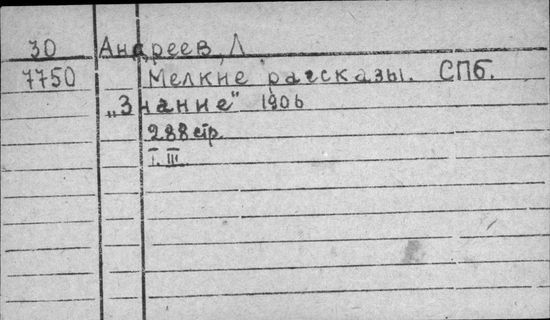 30 Андреев, Л
7750 Мелкие рассказы. СПб.
„Знание" 1906
288 стр.
I. III